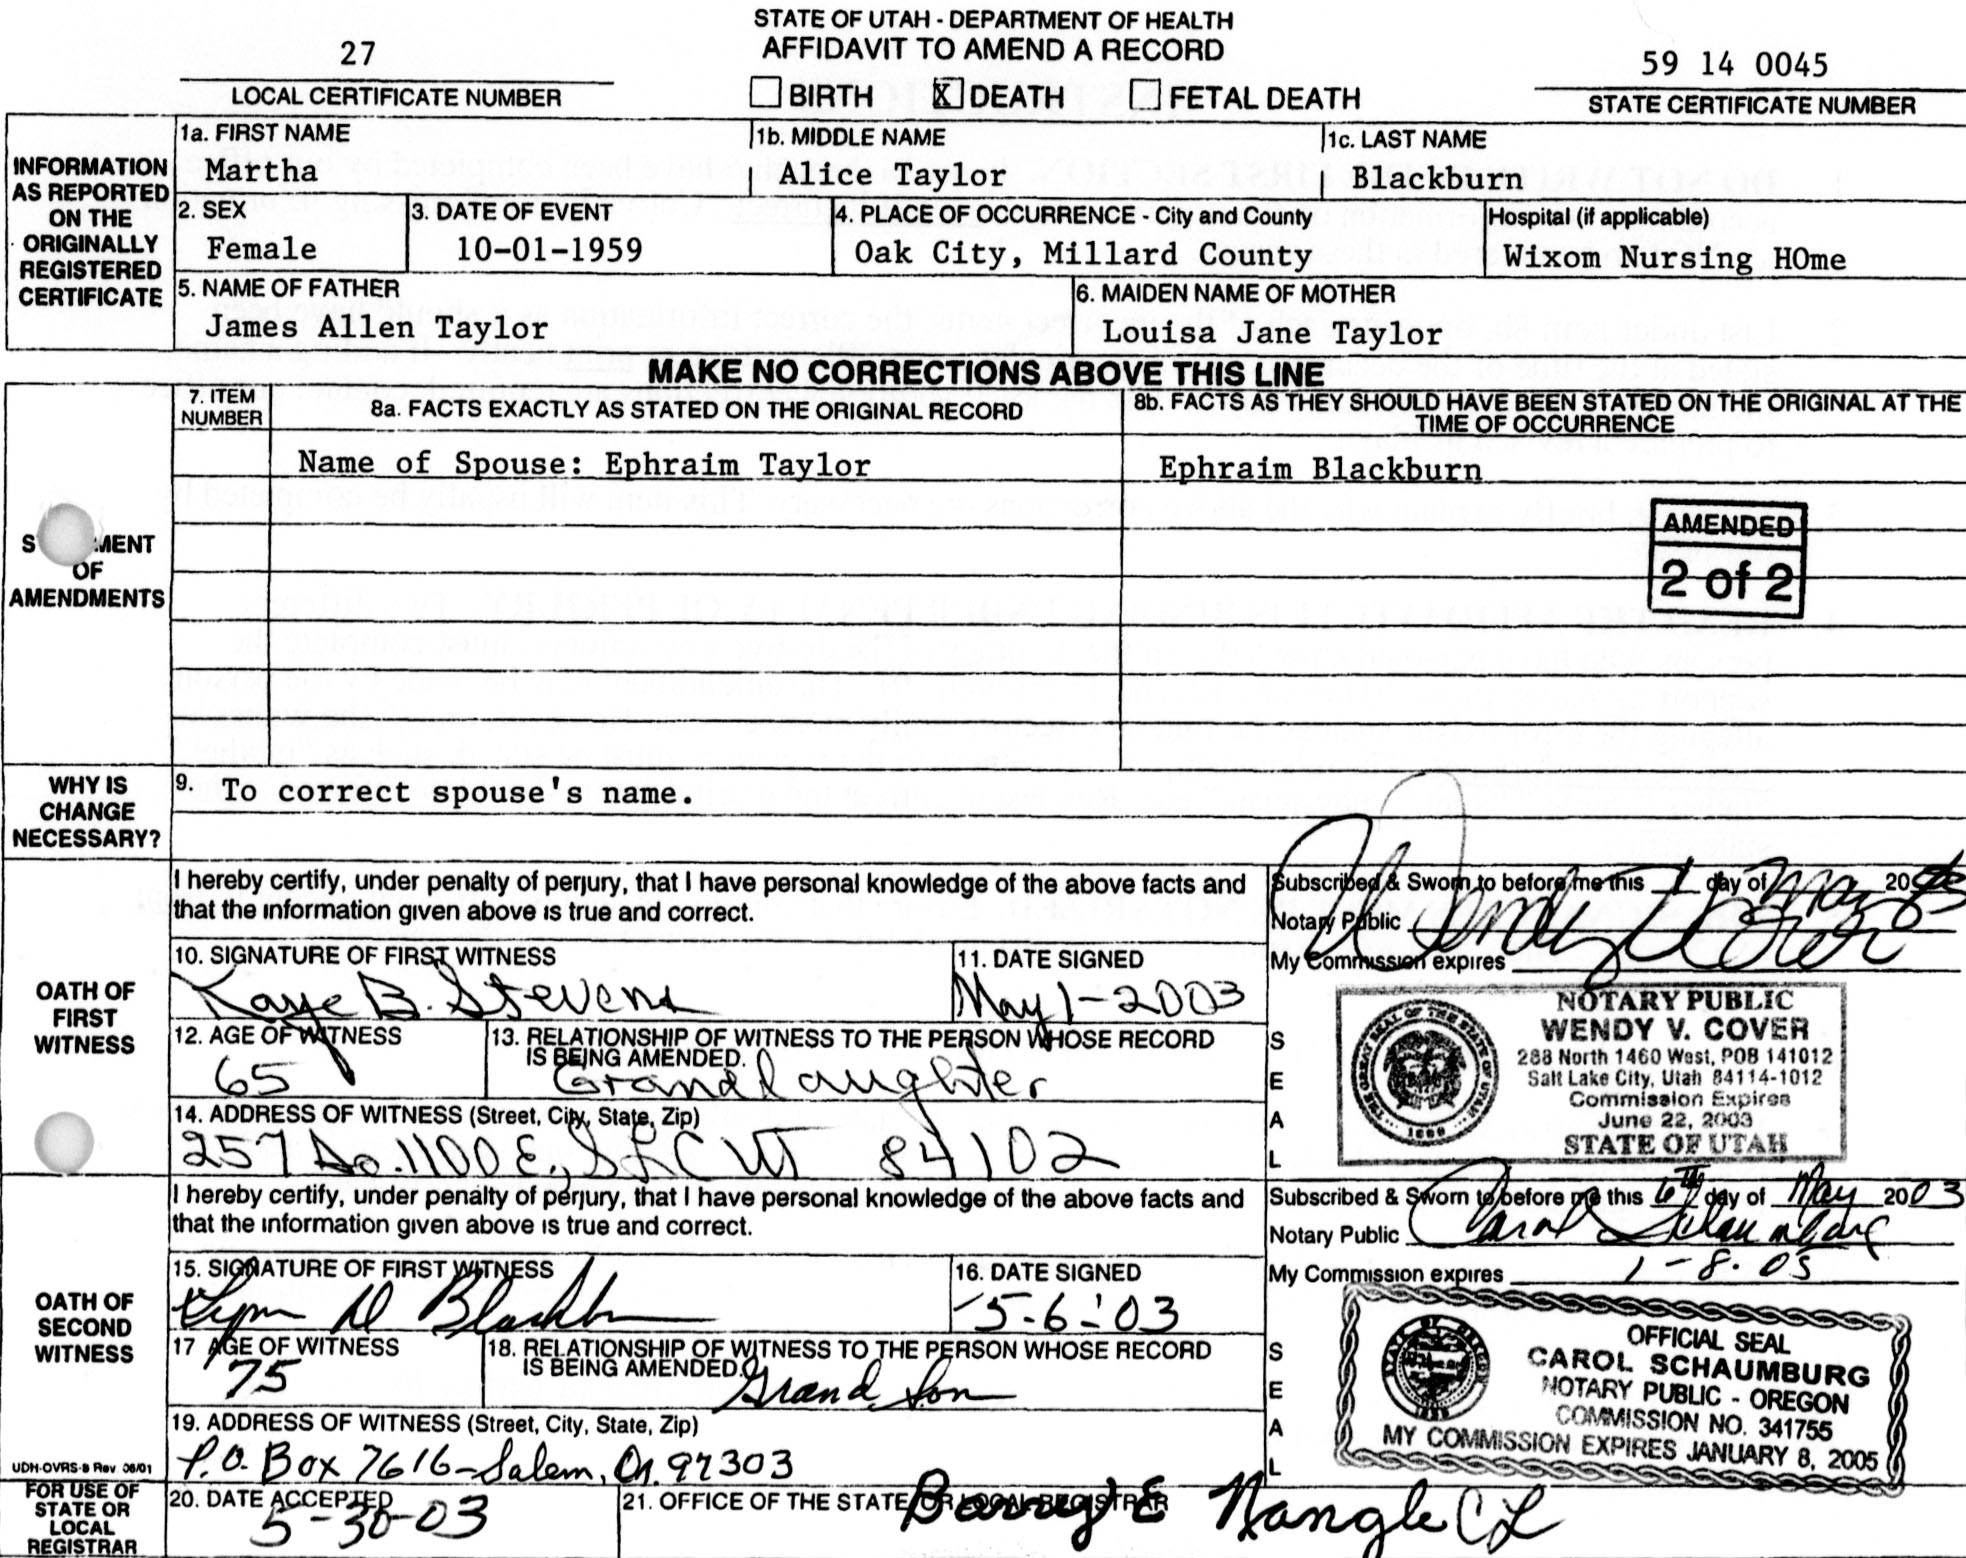 STATE OF UTAH - DEPARTMENT OF HEALTH
AFFIDAVIT TO AMEND A RECORD
27
LOCAL CERTIFICATE NUMBER
BIRTH X DEATH FETAL DEATH
59 14 0045
STATE CERTIFICATE NUMBER
INFORMATION AS REPORTED ON THE ORIGINALLY REGISTERED CERTIFICATE
1a. FIRST NAME
Martha
1b. MIDDLE NAME
Alice Taylor
1c. LAST NAME
Blackburn
2. SEX
Female
3. DATE OF EVENT
10-01-1959
4. PLACE OF OCCURRENCE - City and County
Oak City, Millard County
Hospital (if applicable)
Wixom Nursing HOme
5. NAME OF FATHER
James Allen Taylor
6. MAIDEN NAME OF MOTHER
Louisa Jane Taylor
MAKE NO CORRECTIONS ABOVE THIS LINE
7. ITEM NUMBER
8a. FACTS EXACTLY AS STATED ON THE ORIGINAL RECORD
8b. FACTS AS THEY SHOULD HAVE BEEN STATED ON THE ORIGINAL AT THE
TIME OF OCCURRENCE
Name of Spouse: Ephraim Taylor
Ephraim Blackburn
AMENDED
2 of 2
OF
AMENDMENTS
WHY IS CHANGE NECESSARY?
9. To correct spouse's name.
I hereby certify, under penalty of perjury, that I have personal knowledge of the above facts and
that the information given above is true and correct.
Subscribed & Sworn to before me this 1 day of May 20
Notary Public Wendy V Cover
My Commission expires
OATH OF FIRST WITNESS
10. SIGNATURE OF FIRST WITNESS
Kaye B. Stevens
11. DATE SIGNED
May 1-2003
12. AGE OF WITNESS
65
13. RELATIONSHIP OF WITNESS TO THE PERSON WHOSE RECORD
IS BEING AMENDED.
Grandaughter
14. ADDRESS OF WITNESS (Street, City, State, Zip)
257 So. 1100 E., SLC UT 84102
SEAL
NOTARY PUBLIC
WENDY V. COVER
288 North 1460 West, POB 141012
Salt Lake City, Utah 84114-1012
Commission Expires
June 22, 2003
STATE OF UTAH
I hereby certify, under penalty of perjury, that I have personal knowledge of the above facts and
that the information given above is true and correct.
Subscribed & Sworn to before me this 6th day of May 2003
Notary Public Carol Schaumburg
My Commission expires 1-8-05
OATH OF SECOND WITNESS
15. SIGNATURE OF FIRST WITNESS
Lynn D Blackburn
16. DATE SIGNED
5-6-'03
17 AGE OF WITNESS
75
18. RELATIONSHIP OF WITNESS TO THE PERSON WHOSE RECORD
IS BEING AMENDED.
Grand Son
19. ADDRESS OF WITNESS (Street, City, State, Zip)
P.O. Box 7616-Salem, Or. 97303
SEAL
OFFICIAL SEAL
CAROL SCHAUMBURG
NOTARY PUBLIC - OREGON
COMMISSION NO. 341755
MY COMMISSION EXPIRES JANUARY 8, 2005
UDH-OVRS-B Rev 06/01
FOR USE OF STATE OR LOCAL REGISTRAR
20. DATE ACCEPTED
5-30-03
21. OFFICE OF THE STATE OR LOCAL REGISTRAR
Barry E Nangle CL